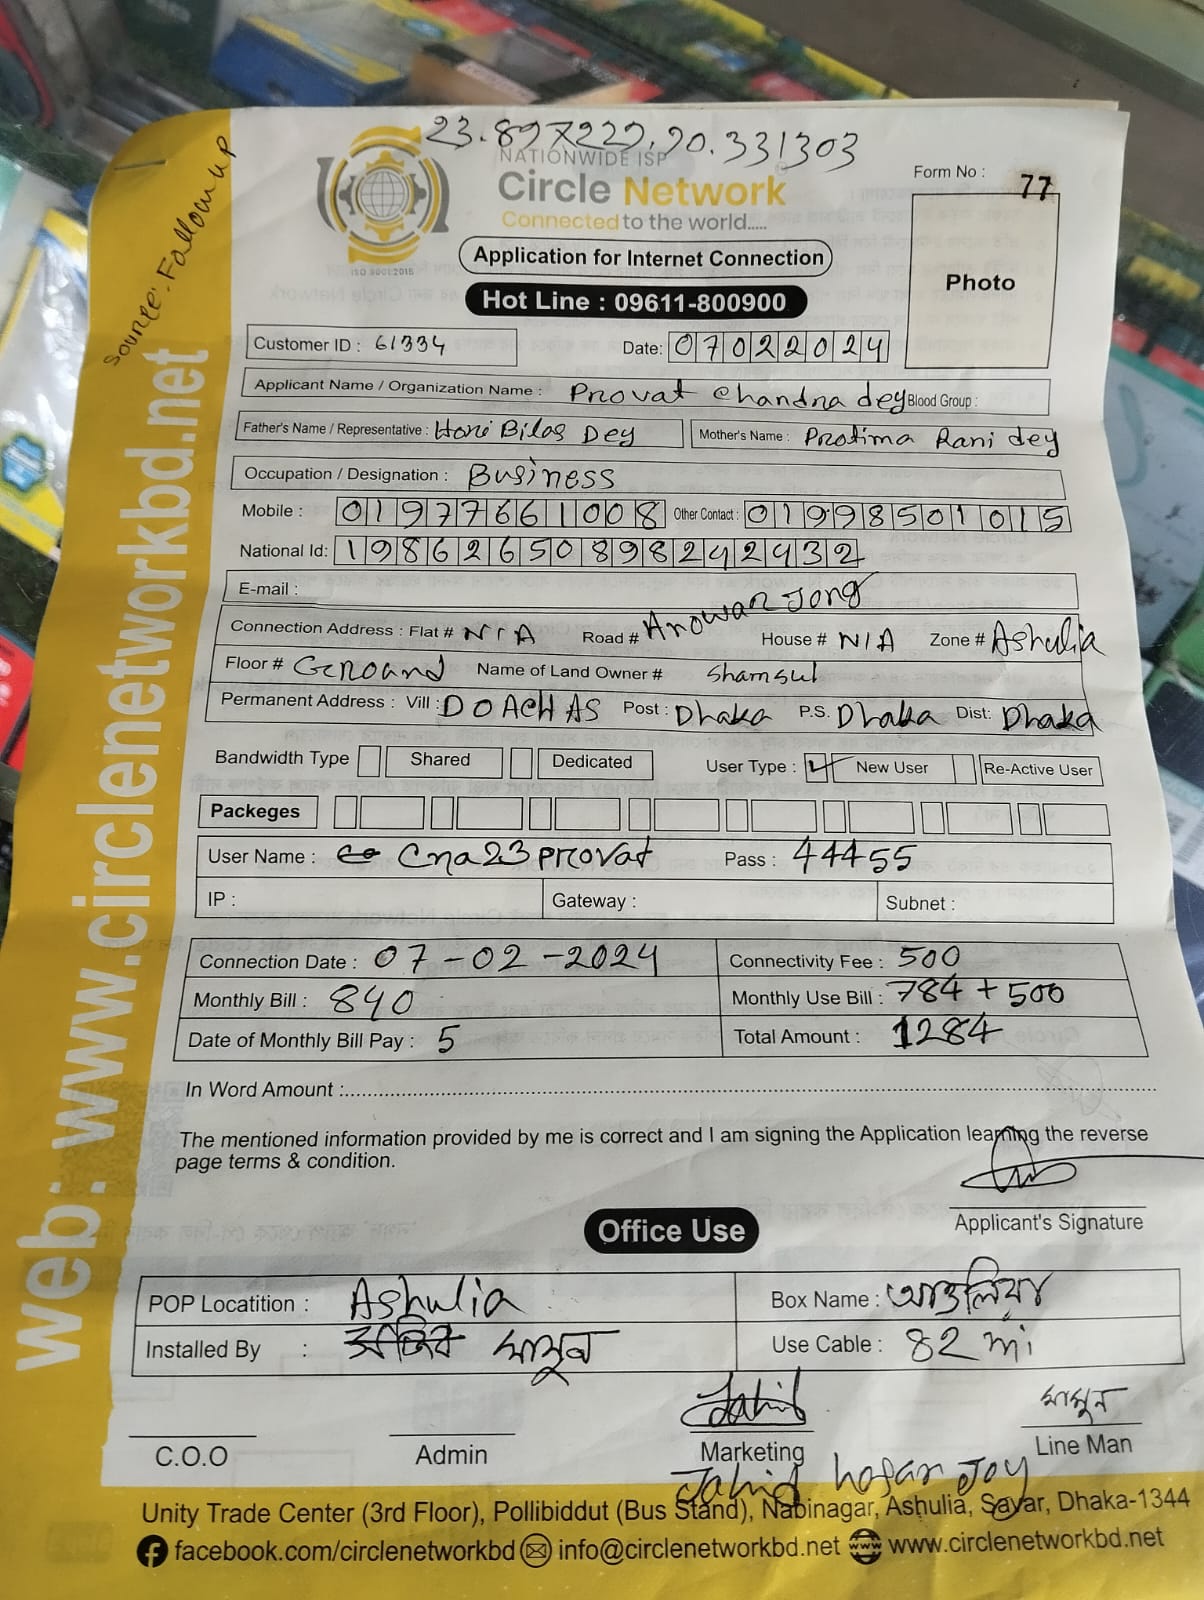 23.897222,90.331303
NATIONWIDE ISP
Circle Network
Connected to the world.....
ISO 9001:2015
Form No : 77
Photo
Application for Internet Connection
Hot Line : 09611-800900
Source: Followup
web: www.circlenetworkbd.net
Customer ID : 61334
Date: 07022024
Applicant Name / Organization Name : Provat Chandra dey Blood Group :
Father's Name / Representative : Hori Bilas Dey Mother's Name : Protima Rani dey
Occupation / Designation : Business
Mobile : 01977661008 Other Contact : 01998501015
National Id: 19862650898242432
E-mail :
Connection Address : Flat # N/A Road # Anowar Jong House # N/A Zone # Ashulia
Floor # Ground Name of Land Owner # Shamsul
Permanent Address : Vill : DOACHAS Post : Dhaka P.S. Dhaka Dist: Dhaka
Bandwidth Type Shared Dedicated User Type : New User Re-Active User
Packeges
User Name : Cna23provat Pass : 44455
IP : Gateway : Subnet :
Connection Date : 07-02-2024 Connectivity Fee : 500
Monthly Bill : 840 Monthly Use Bill : 784 + 500
Date of Monthly Bill Pay : 5 Total Amount : 1284
In Word Amount :
The mentioned information provided by me is correct and I am signing the Application learning the reverse
page terms & condition.
Applicant's Signature
Office Use
POP Locatition : Ashulia Box Name : আশুলিয়া
Installed By : মামুন Use Cable : 82 mi
Jahid মামুন
C.O.O Admin Marketing Line Man
Jahid hasan Joy
Unity Trade Center (3rd Floor), Pollibiddut (Bus Stand), Nabinagar, Ashulia, Savar, Dhaka-1344
facebook.com/circlenetworkbd info@circlenetworkbd.net www.circlenetworkbd.net